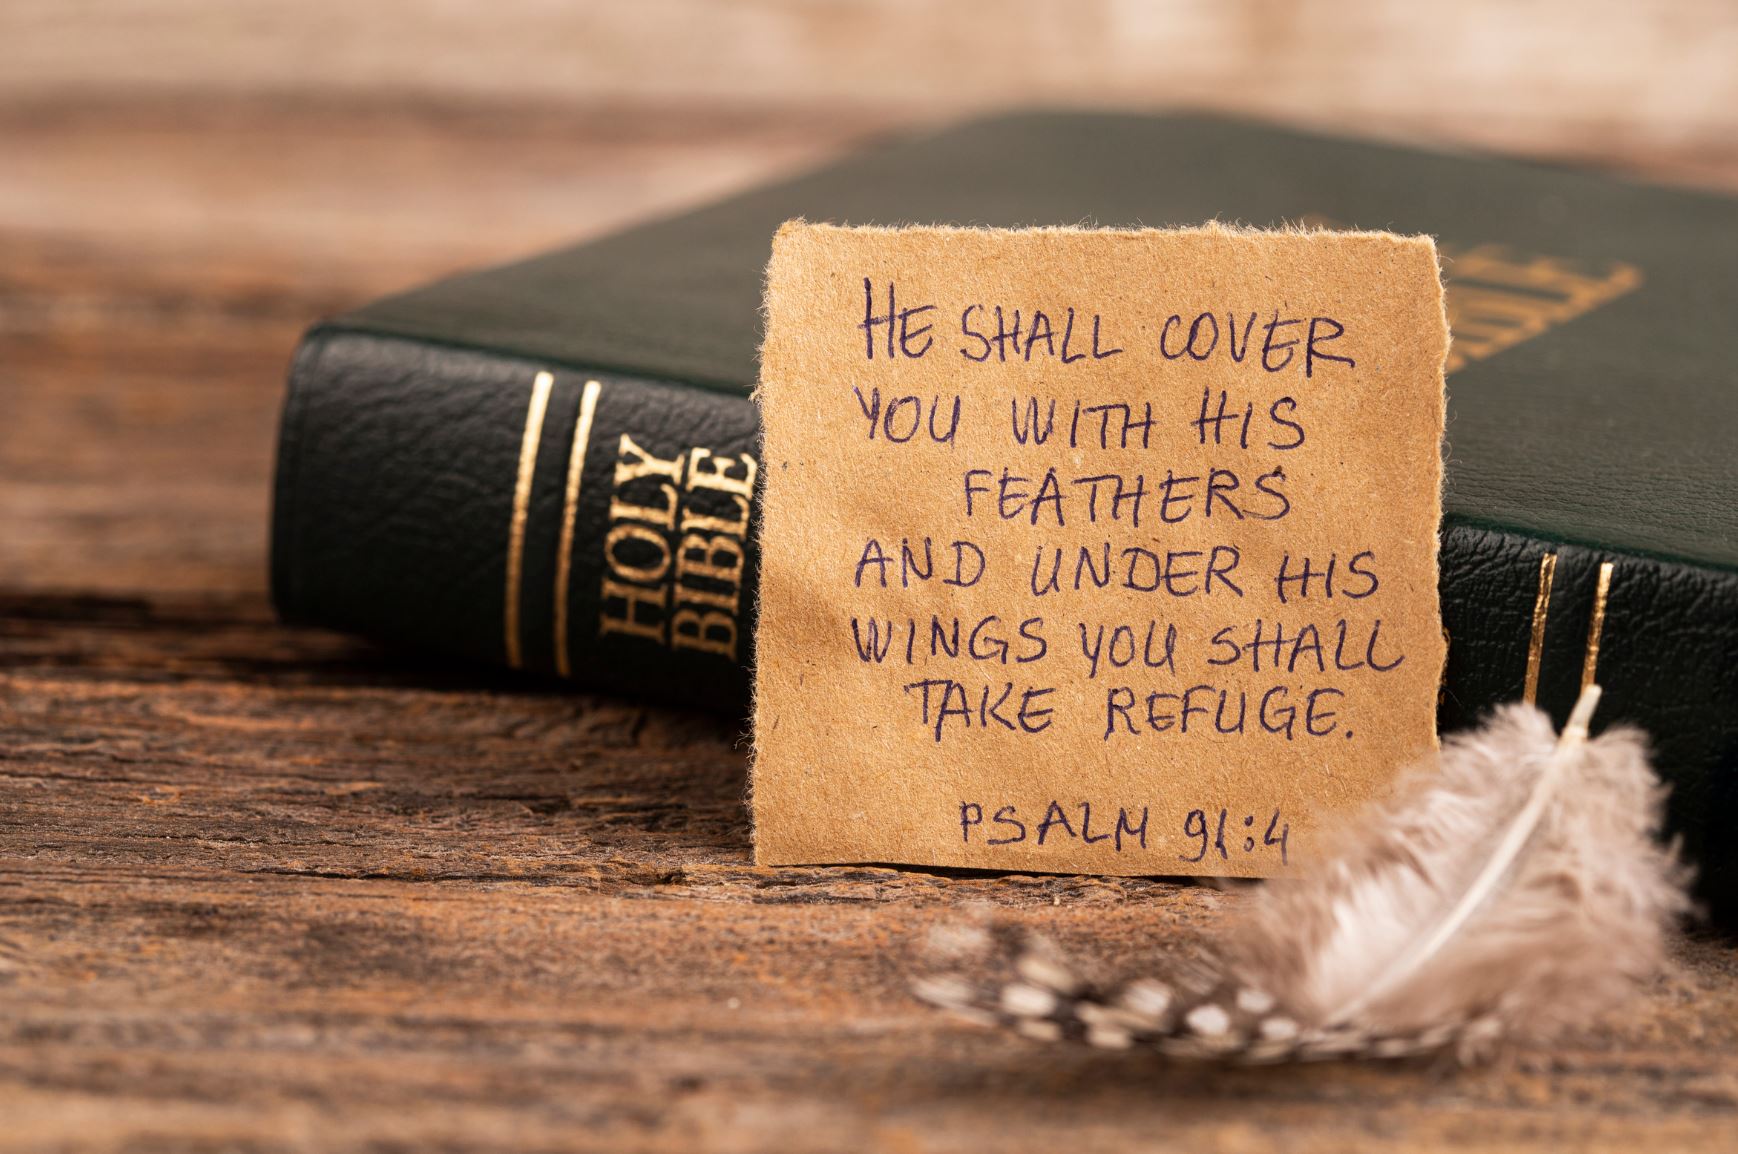 HOLY
BIBLE
HE SHALL COVER
YOU WITH HIS
FEATHERS
AND UNDER HIS
WINGS YOU SHALL
TAKE REFUGE.
PSALM 91:4